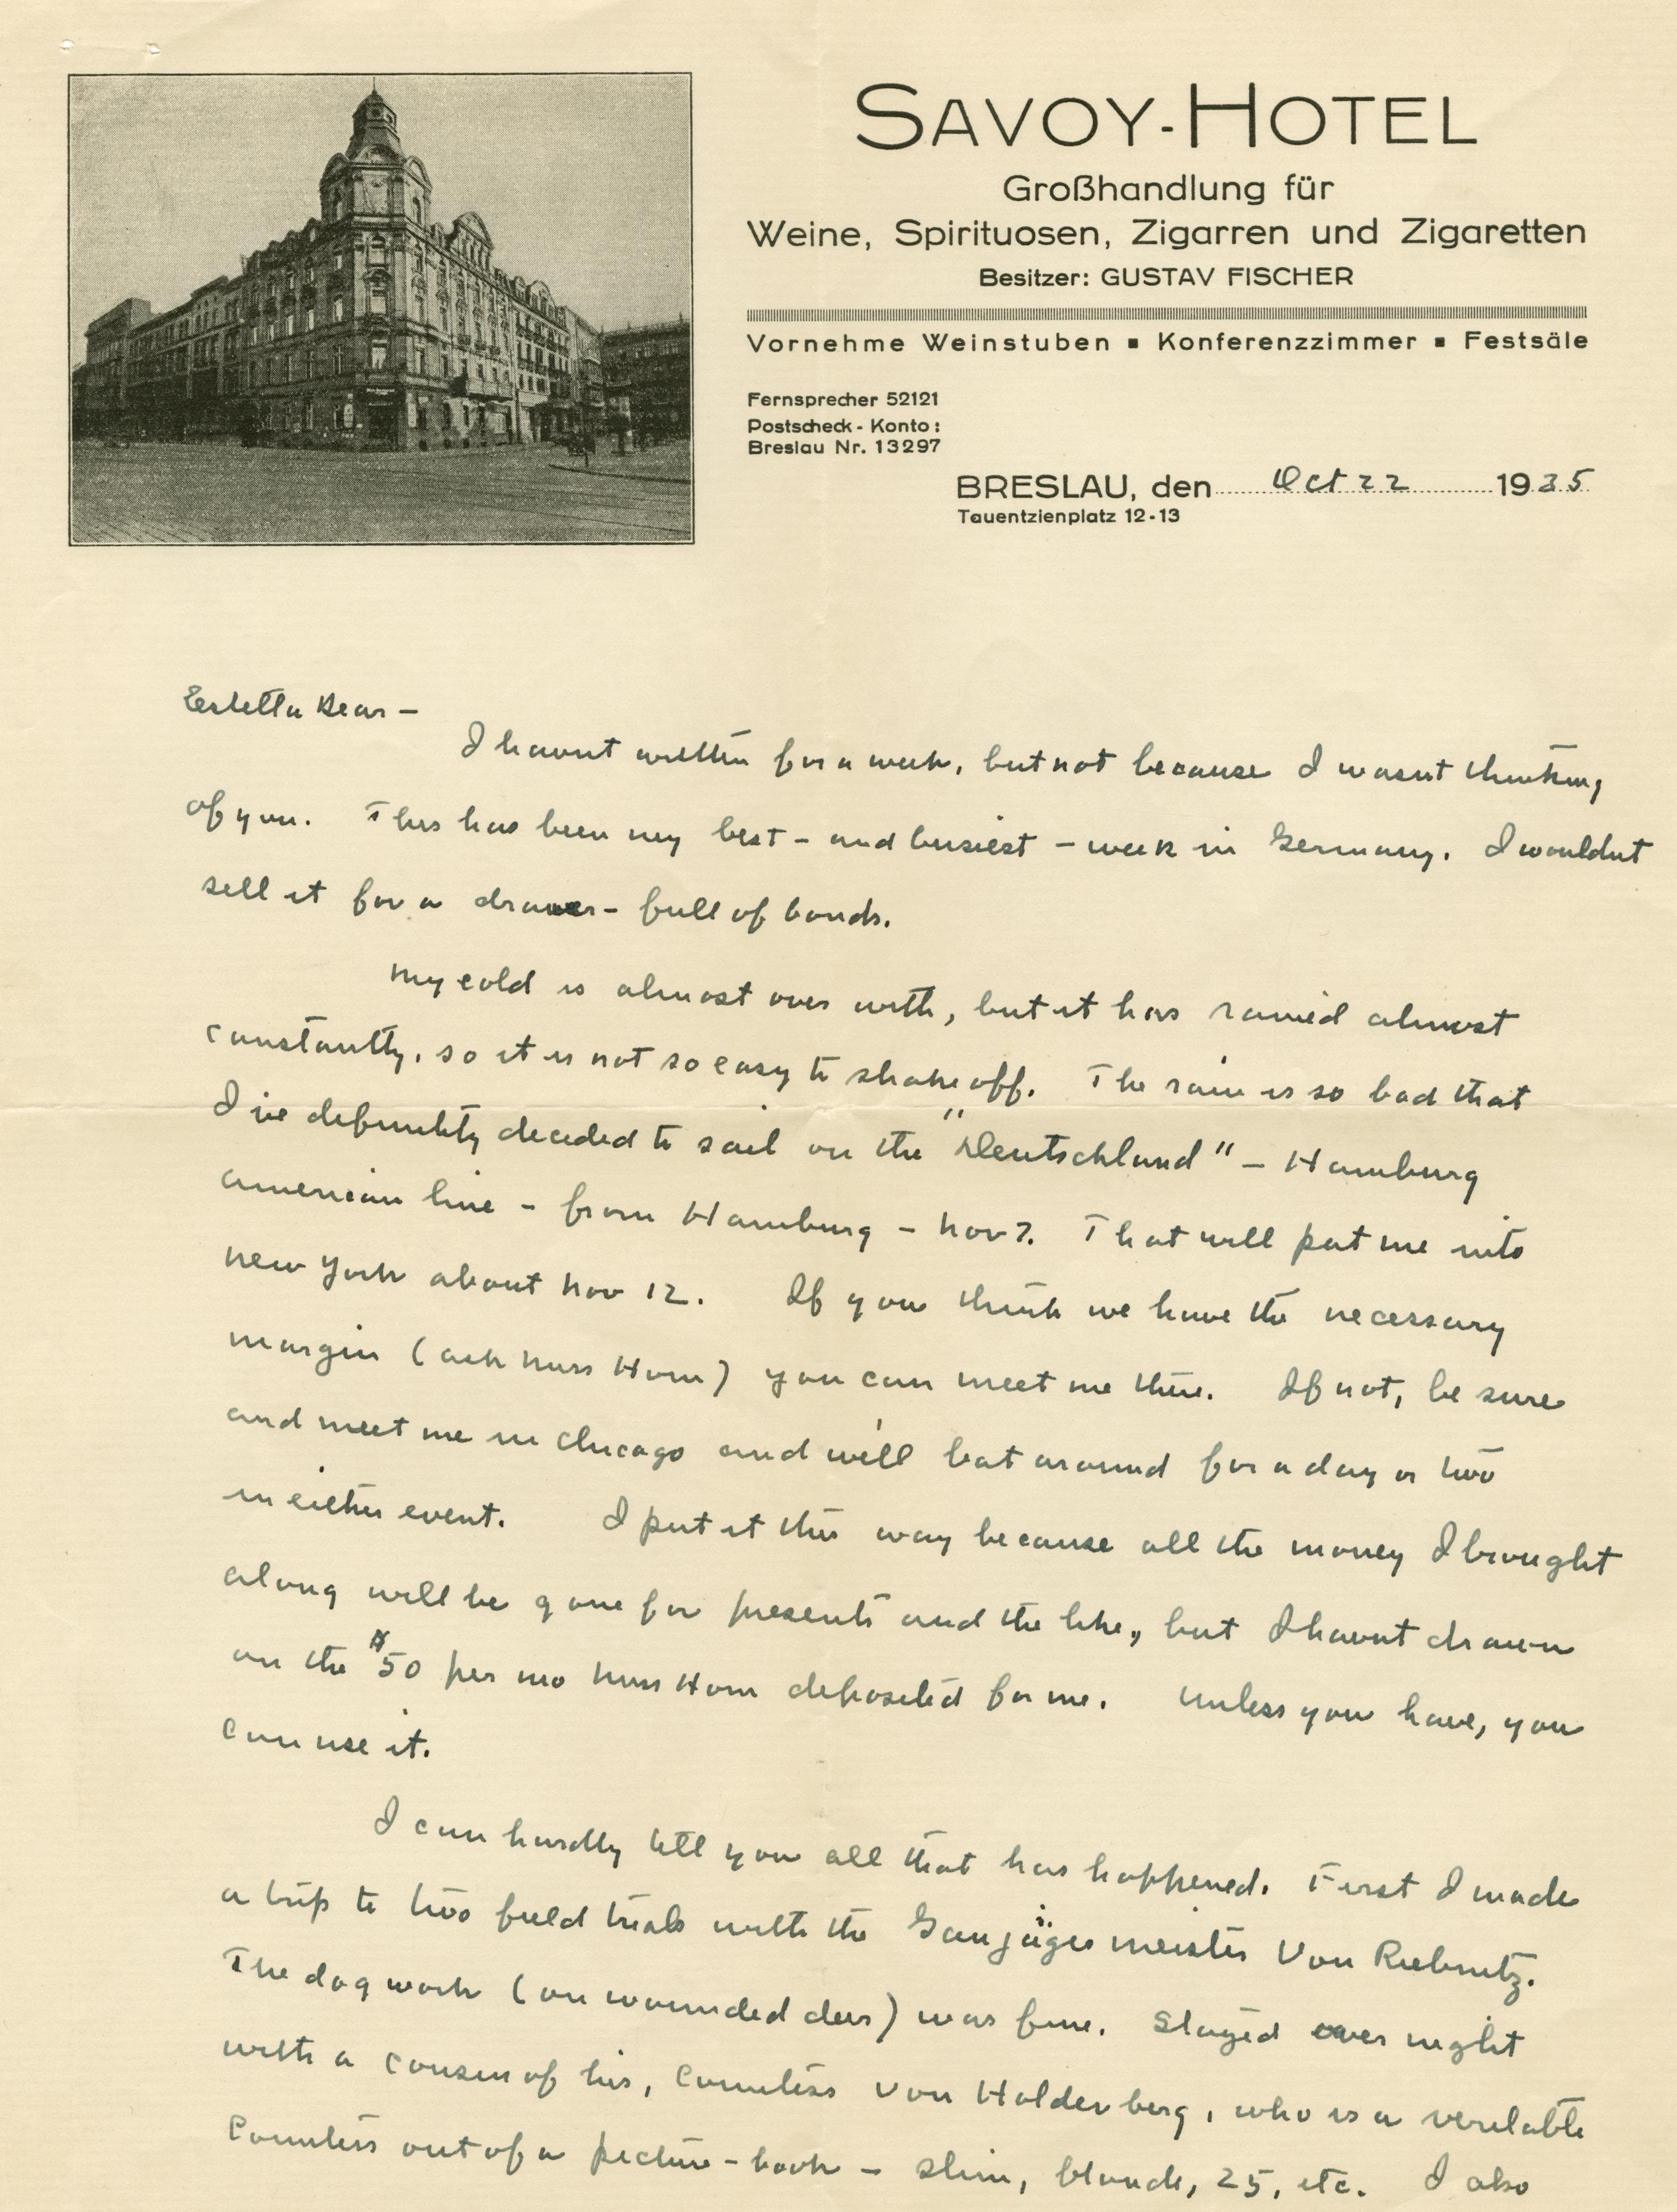 SAVOY-HOTEL
Großhandlung für
Weine, Spirituosen, Zigarren und Zigaretten
Besitzer: GUSTAV FISCHER
Vornehme Weinstuben ▪ Konferenzzimmer ▪ Festsäle
Fernsprecher 52121
Postscheck-Konto:
Breslau Nr. 13297
BRESLAU, den Oct 22 1935
Tauentzienplatz 12-13
Estella Dear –
I havnt written for a week, but not because I wasnt thinking
of you. This has been my best – and busiest – week in Germany. I wouldnt
sell it for a drawer-full of bonds.
My cold is almost over with, but it has rained almost
constantly, so it is not so easy to shake off. The rain is so bad that
I've definitely decided to sail on the "Deutschland" – Hamburg
American line – from Hamburg – Nov 7. That will put me into
New York about Nov 12. If you think we have the necessary
margin (ask Miss Horn) you can meet me there. If not, be sure
and meet me in Chicago and we'll bat around for a day or two
in either event. I put it this way because all the money I brought
along will be gone for presents and the like, but I havnt drawn
on the $50 per mo Miss Horn deposited for me. Unless you have, you
can use it.
I can hardly tell you all that has happened. First I made
a trip to two field trials with the Gaujägermeister Von Riebnitz.
The dog work (on wounded deer) was fine. Stayed over night
with a cousin of his, Countess von Holdenberg, who is a veritable
Countess out of a picture-book – slim, blonde, 25, etc. I also